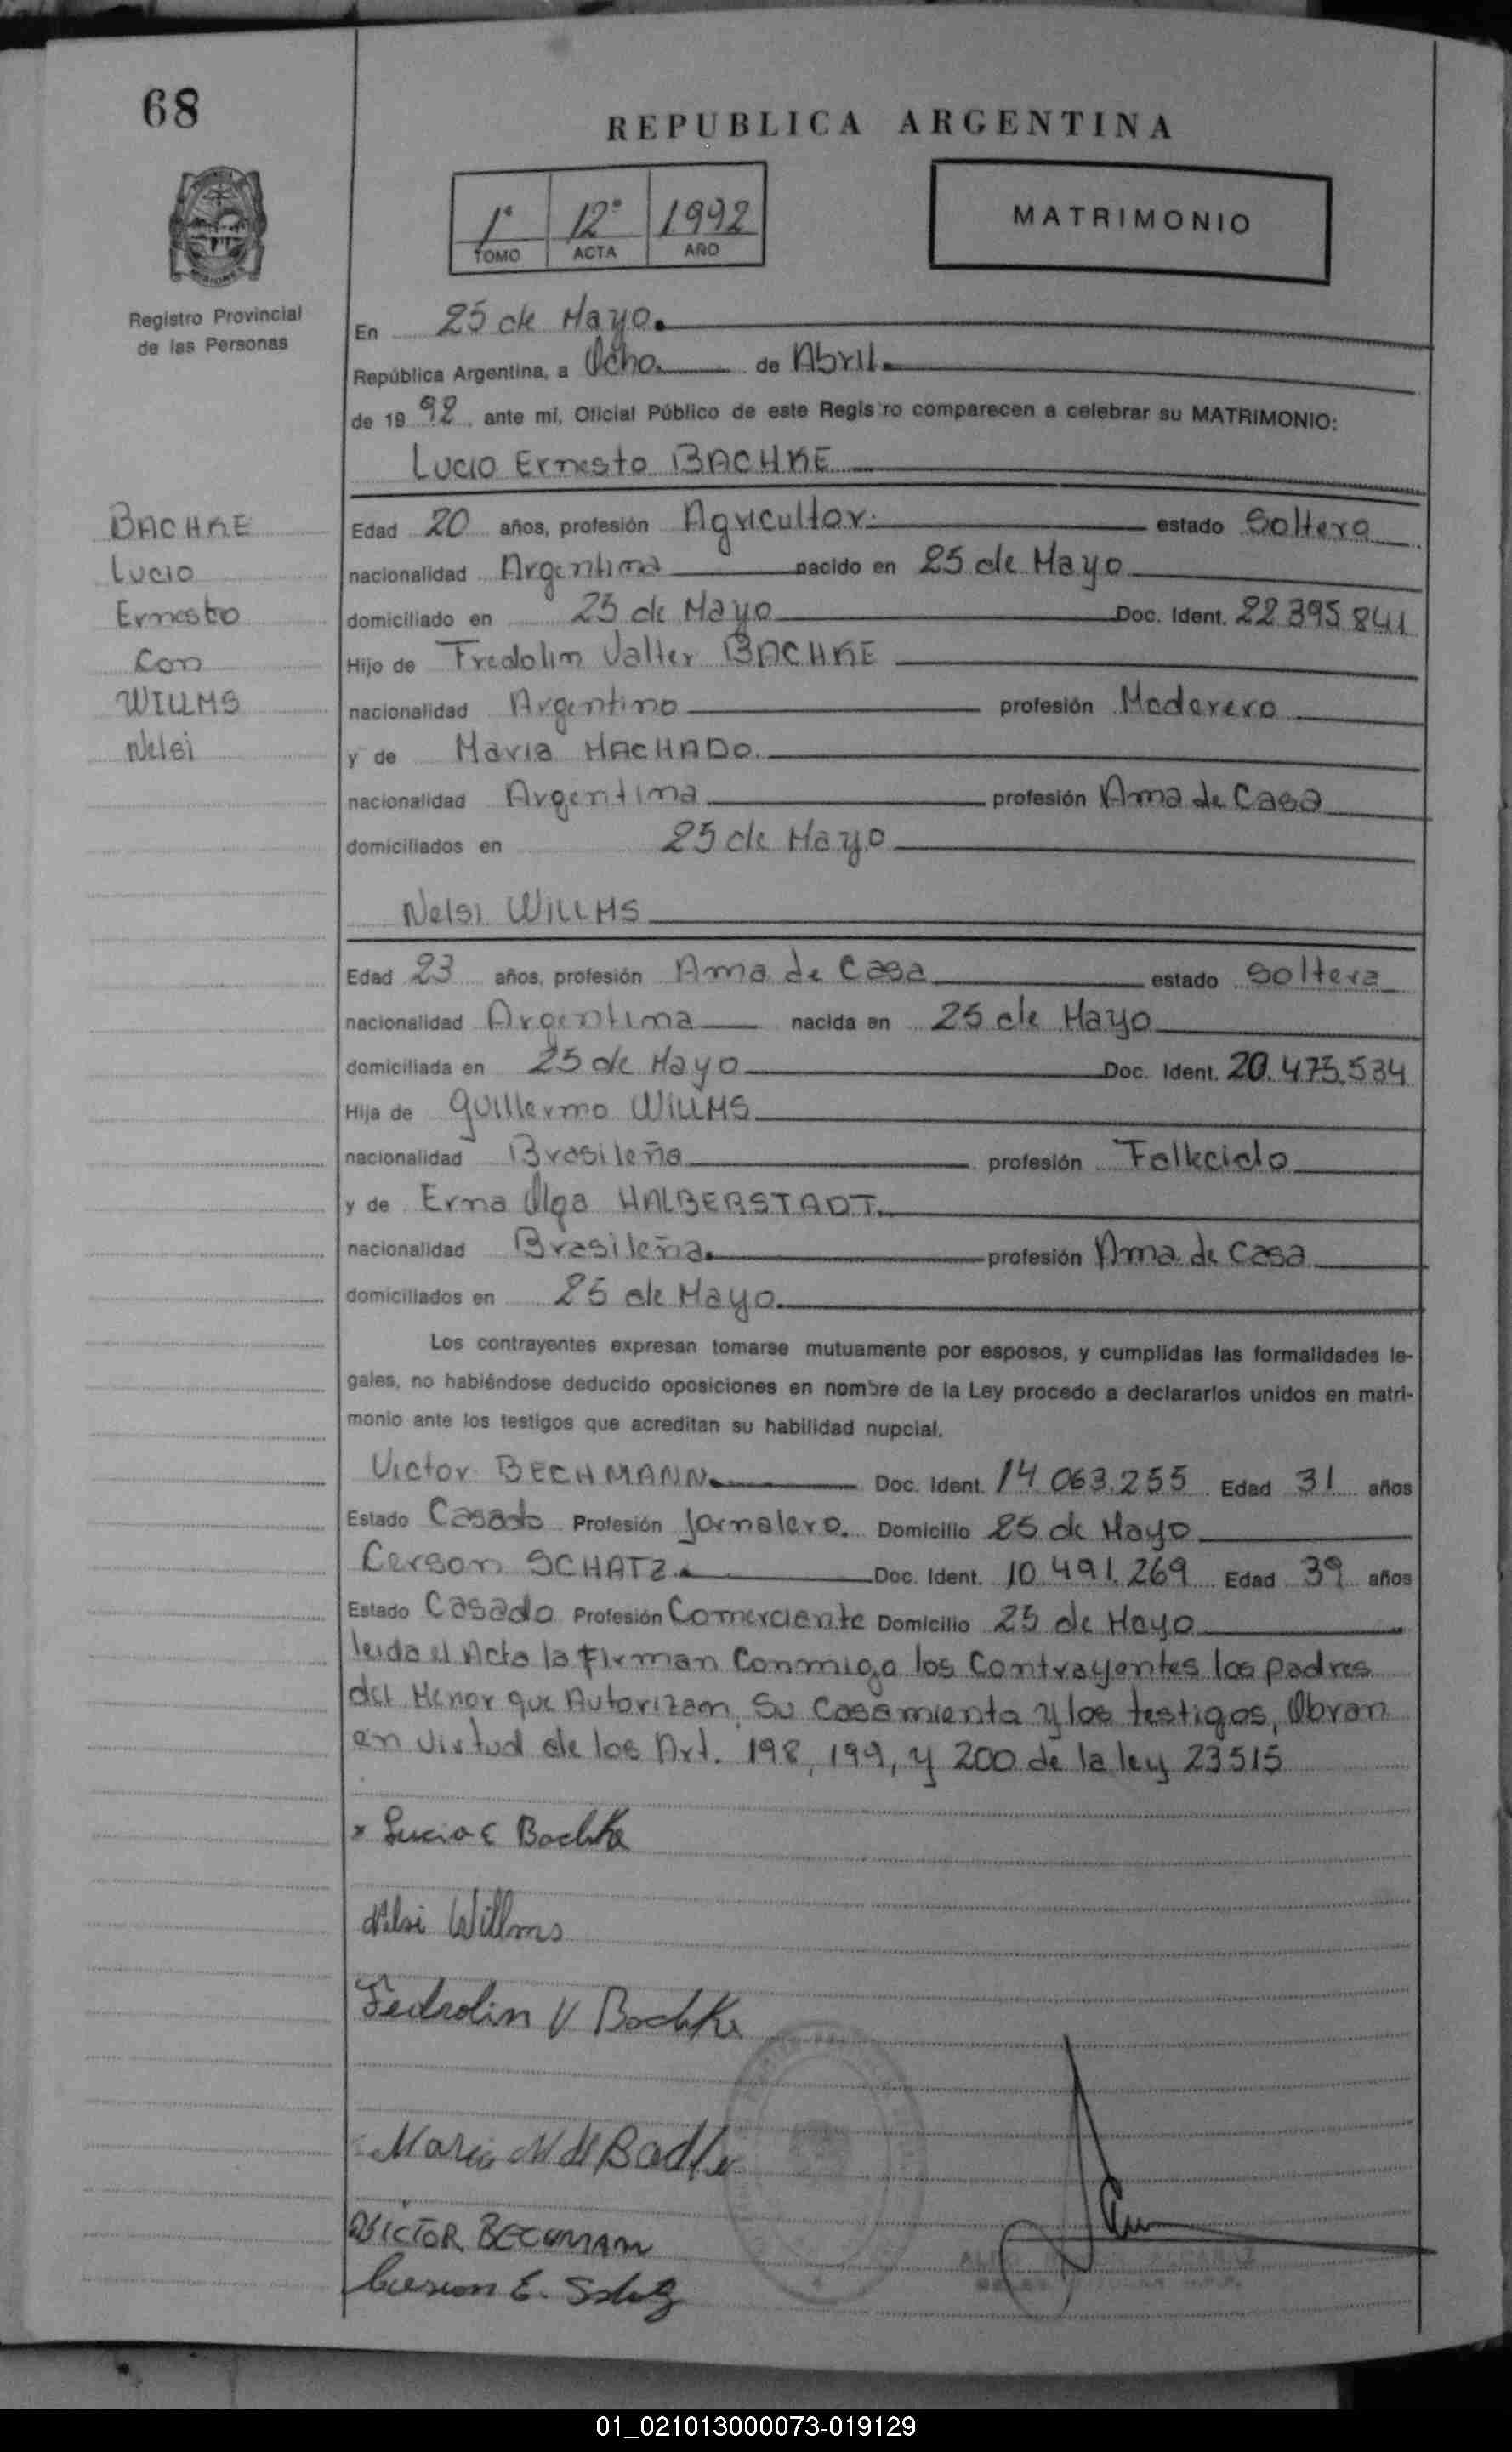 68
REPUBLICA ARGENTINA
1º 12º 1992
TOMO ACTA AÑO
MATRIMONIO
Registro Provincial
de las Personas
En 25 de Mayo.
República Argentina, a Ocho. de Abril.
de 19 92, ante mí, Oficial Público de este Registro comparecen a celebrar su MATRIMONIO:
Lucio Ernesto BACHKE
BACHKE
Lucio
Ernesto
Con
WILLMS
Nelsi
Edad 20 años, profesión Agricultor. estado Soltero
nacionalidad Argentina nacido en 25 de Mayo
domiciliado en 25 de Mayo Doc. Ident. 22 395 841
Hijo de Fredolin Valter BACHKE
nacionalidad Argentino profesión Maderero
y de Maria MACHADO.
nacionalidad Argentina profesión Ama de Casa
domiciliados en 25 de Mayo
Nelsi WILLMS
Edad 23 años, profesión Ama de Casa estado Soltera
nacionalidad Argentina nacida en 25 de Mayo
domiciliada en 25 de Mayo Doc. Ident. 20.473.534
Hija de Guillermo WILLMS
nacionalidad Brasileña profesión Fallecido
y de Erma Olga HALBERSTADT.
nacionalidad Brasileña. profesión Ama de Casa
domiciliados en 25 de Mayo.
Los contrayentes expresan tomarse mutuamente por esposos, y cumplidas las formalidades le-
gales, no habiéndose deducido oposiciones en nombre de la Ley procedo a declararlos unidos en matri-
monio ante los testigos que acreditan su habilidad nupcial.
Victor BECHMANN. Doc. Ident. 14 063.255 Edad 31 años
Estado Casado Profesión Jornalero. Domicilio 25 de Mayo
Cerson SCHATZ. Doc. Ident. 10.491.269 Edad 39 años
Estado Casado Profesión Comerciante Domicilio 25 de Mayo
leida el Acta la Firman Conmigo los Contrayentes los padres
del Menor que Autorizan. Su Casamiento y los testigos, Obran
en virtud de los Art. 198, 199, y 200 de la ley 23515
x Lucio E Bachke
Nelsi Willms
Fedrolin V Bachke
Maria M de Bachke
VICTOR BECHMANN
Cerson E. Schatz
01_021013000073-019129